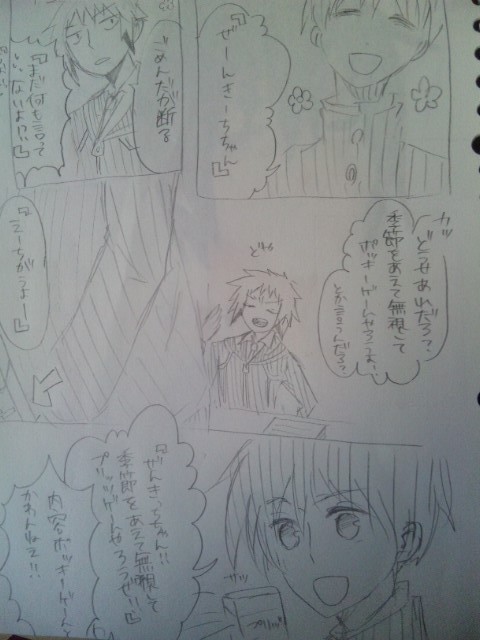 『ぜーんきーちちゃん』
ごめんだが断る
『まだ何も言って
いないよ!?』
カッ
どうせあれだろ?
季節をあえて無視して
ポッキーゲームやろうよ、
とか言うんだろ?
どや
『えーちがうよー』
『ぜんきっちゃん!!
季節をあえて無視して
プリッツゲームやろうぜ!!』
プリッツ
内容ポッキーゲームと
かわんねぇ!!